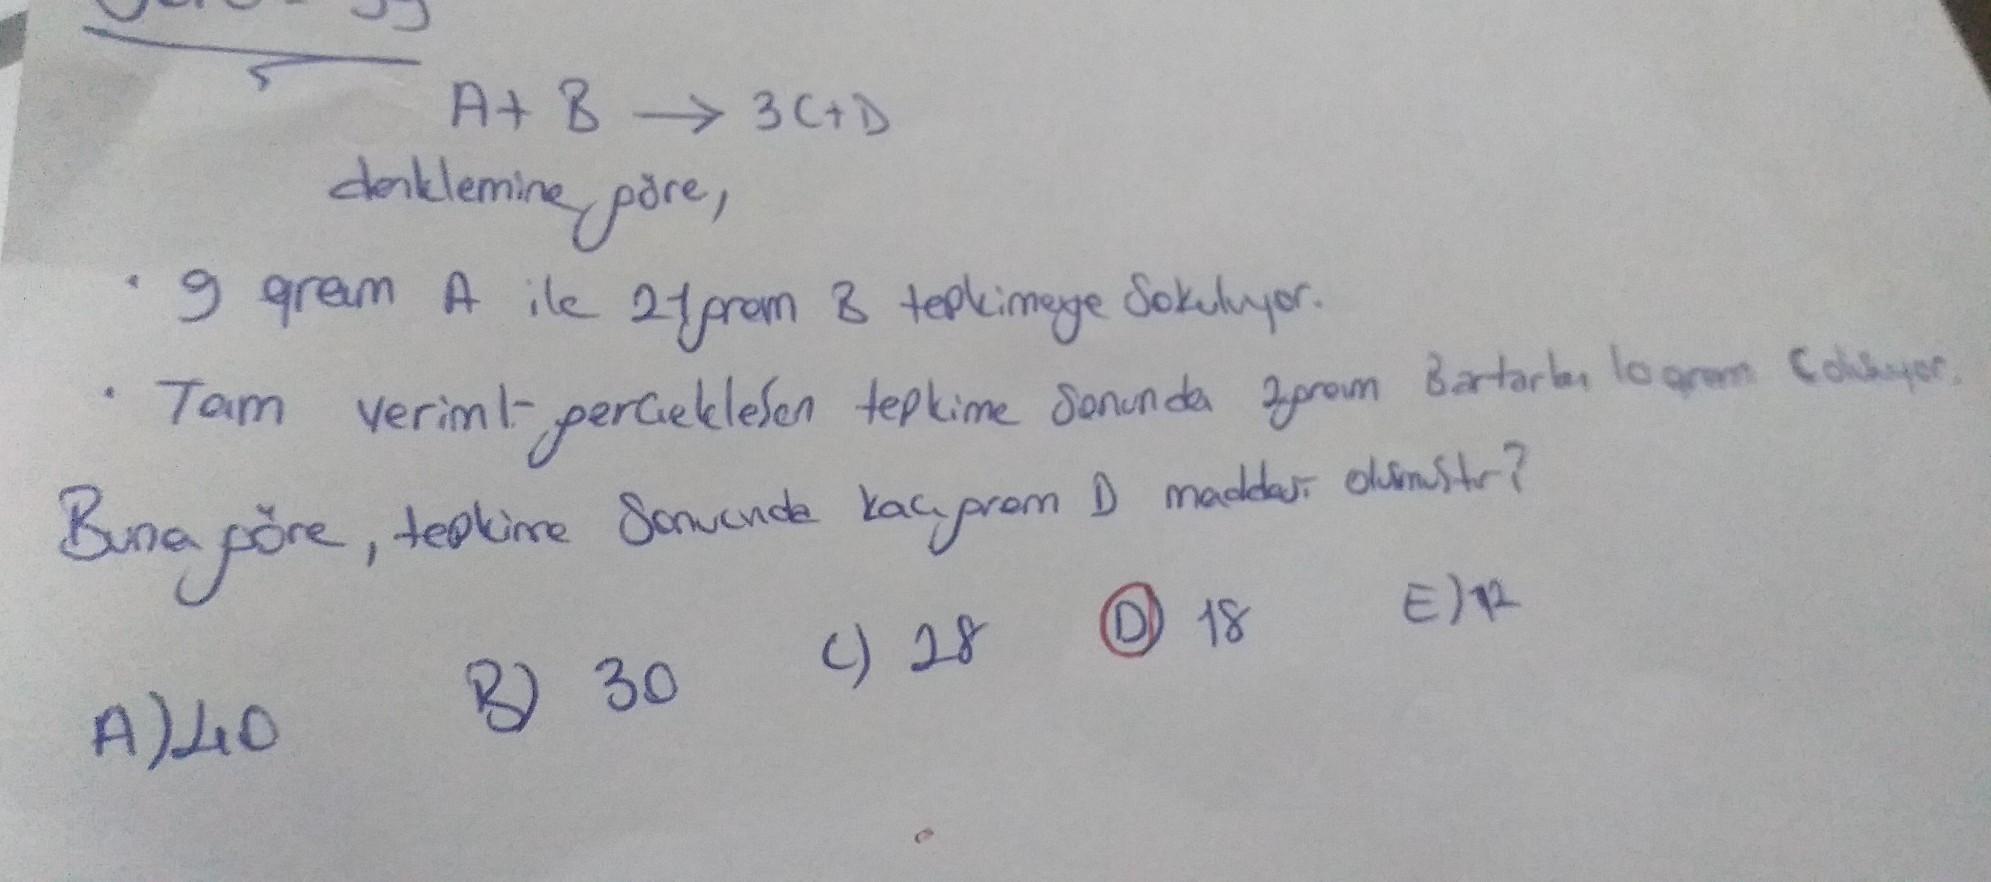 A + B → 3C + D
denklemine göre,
• 9 gram A ile 21 gram B tepkimeye sokuluyor.
• Tam verimli gerçekleşen tepkime sonunda 2 gram B artarken 10 gram C oluşuyor.
Buna göre, tepkime sonucunda kaç gram D maddesi oluşmuştur?
A) 40 B) 30 C) 28 D) 18 E) 12